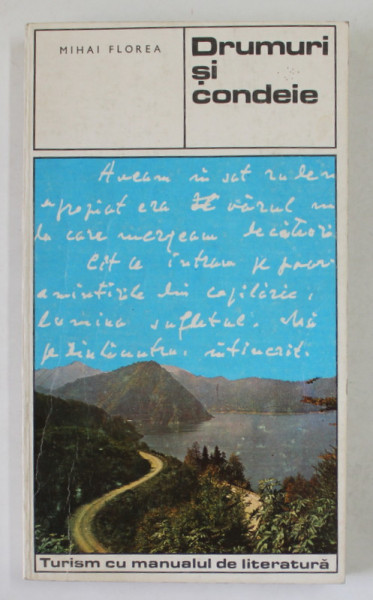 MIHAI FLOREA
Drumuri
și
condeie
Aveam în sat
apropiat era vărul
la care mergeam
Cît ce intram pe
amintirile din copilărie,
lumina sufletul.
întinerit.
Turism cu manualul de literatură